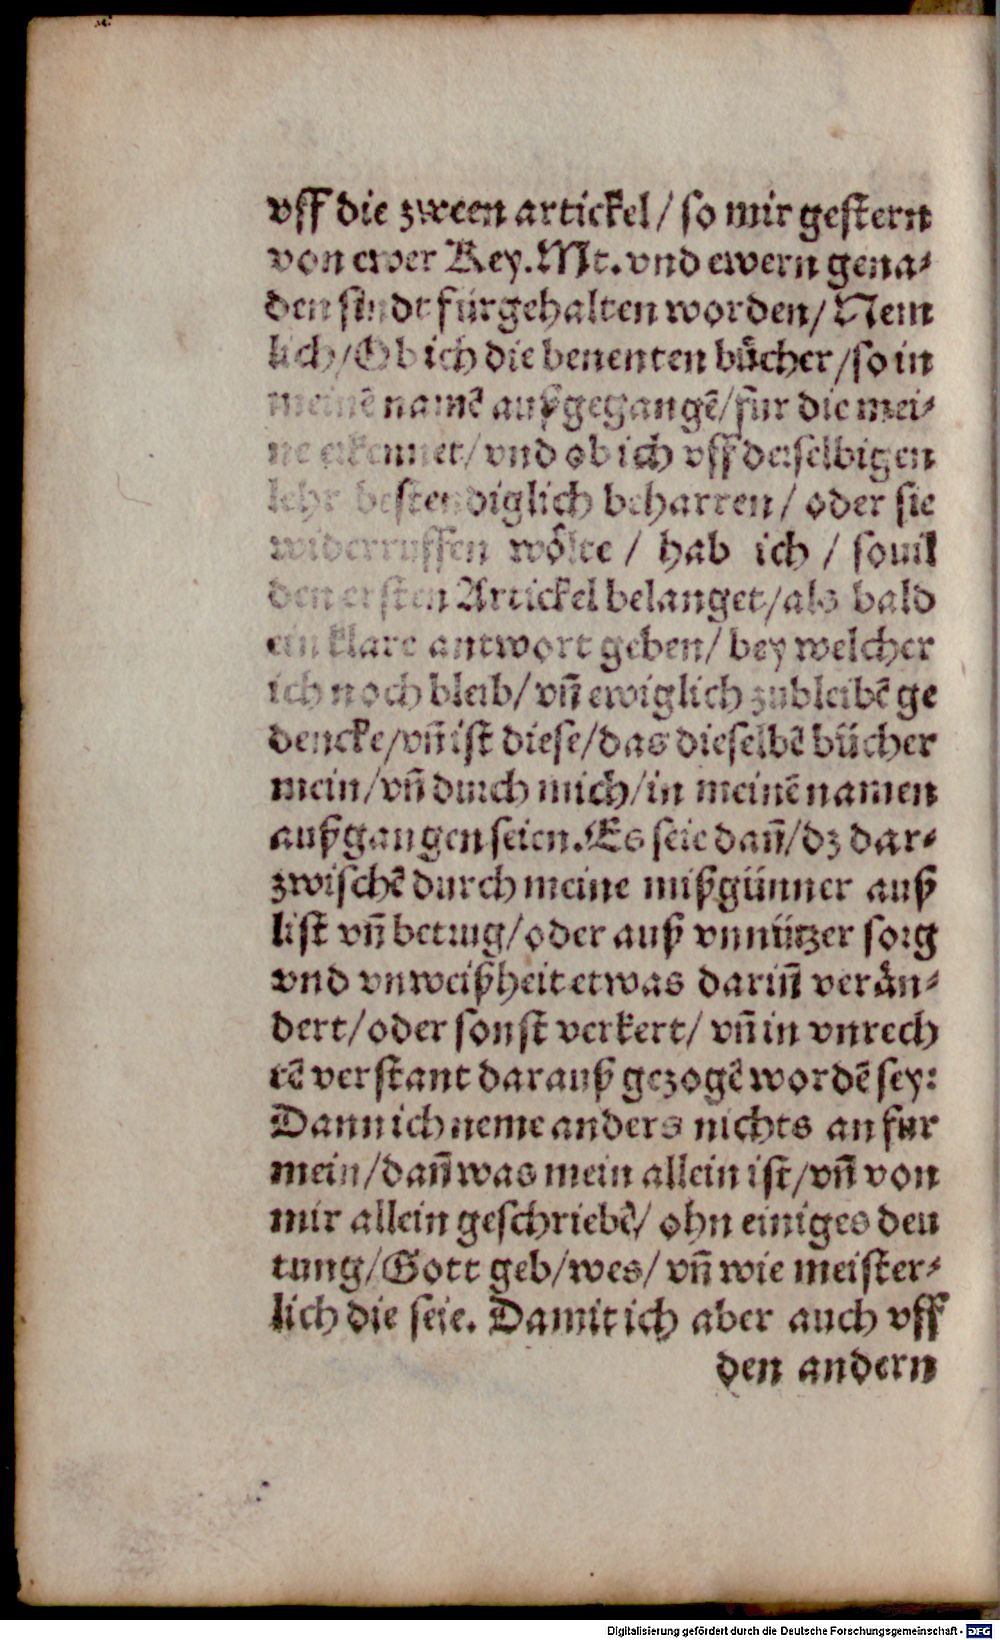 vff die zween artickel/ so mir gestern
von ewer Key. Mt. vnd ewern gena⸗
den sindt fürgehalten worden/ Nem
lich/ Ob ich die benenten bücher/ so in
meinẽ namẽ außgegangẽ/ für die mei⸗
ne erkennet/ vnd ob ich vff derselbigen
lehr bestendiglich beharren/ oder sie
widerruffen wölte / hab ich / souil
den ersten Artickel belanget/ als bald
ein klare antwort geben/ bey welcher
ich noch bleib/ vñ ewiglich zubleibẽ ge
dencke/ vñ ist diese/ das dieselbẽ bücher
mein/ vñ durch mich/ in meinẽ namen
außgangen seien. Es seie dañ/ dz dar⸗
zwischẽ durch meine mißgünner auß
list vñ betrug/ oder auß vnnützer sorg
vnd vnweißheit etwas dariñ verän⸗
dert/ oder sonst verkert/ vñ in vnrech
tẽ verstant darauß gezogẽ wordẽ sey:
Dann ich neme anders nichts an fur
mein/ dañ was mein allein ist/ vñ von
mir allein geschriebẽ/ ohn einiges deu
tung/ Gott geb/ wes/ vñ wie meister⸗
lich die seie. Damit ich aber auch vff
den andern
Digitalisierung gefördert durch die Deutsche Forschungsgemeinschaft - DFG